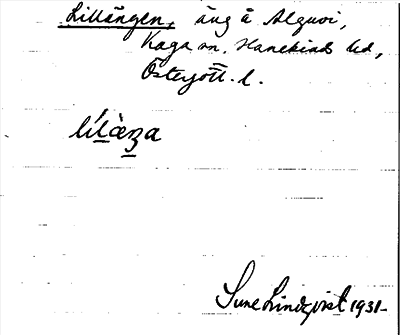 Lillängen, äng å Algusvi,
Kaga sn. Hanekinds hd,
Östergötl. l.
lílàŋa
Sune Lindqvist 1931